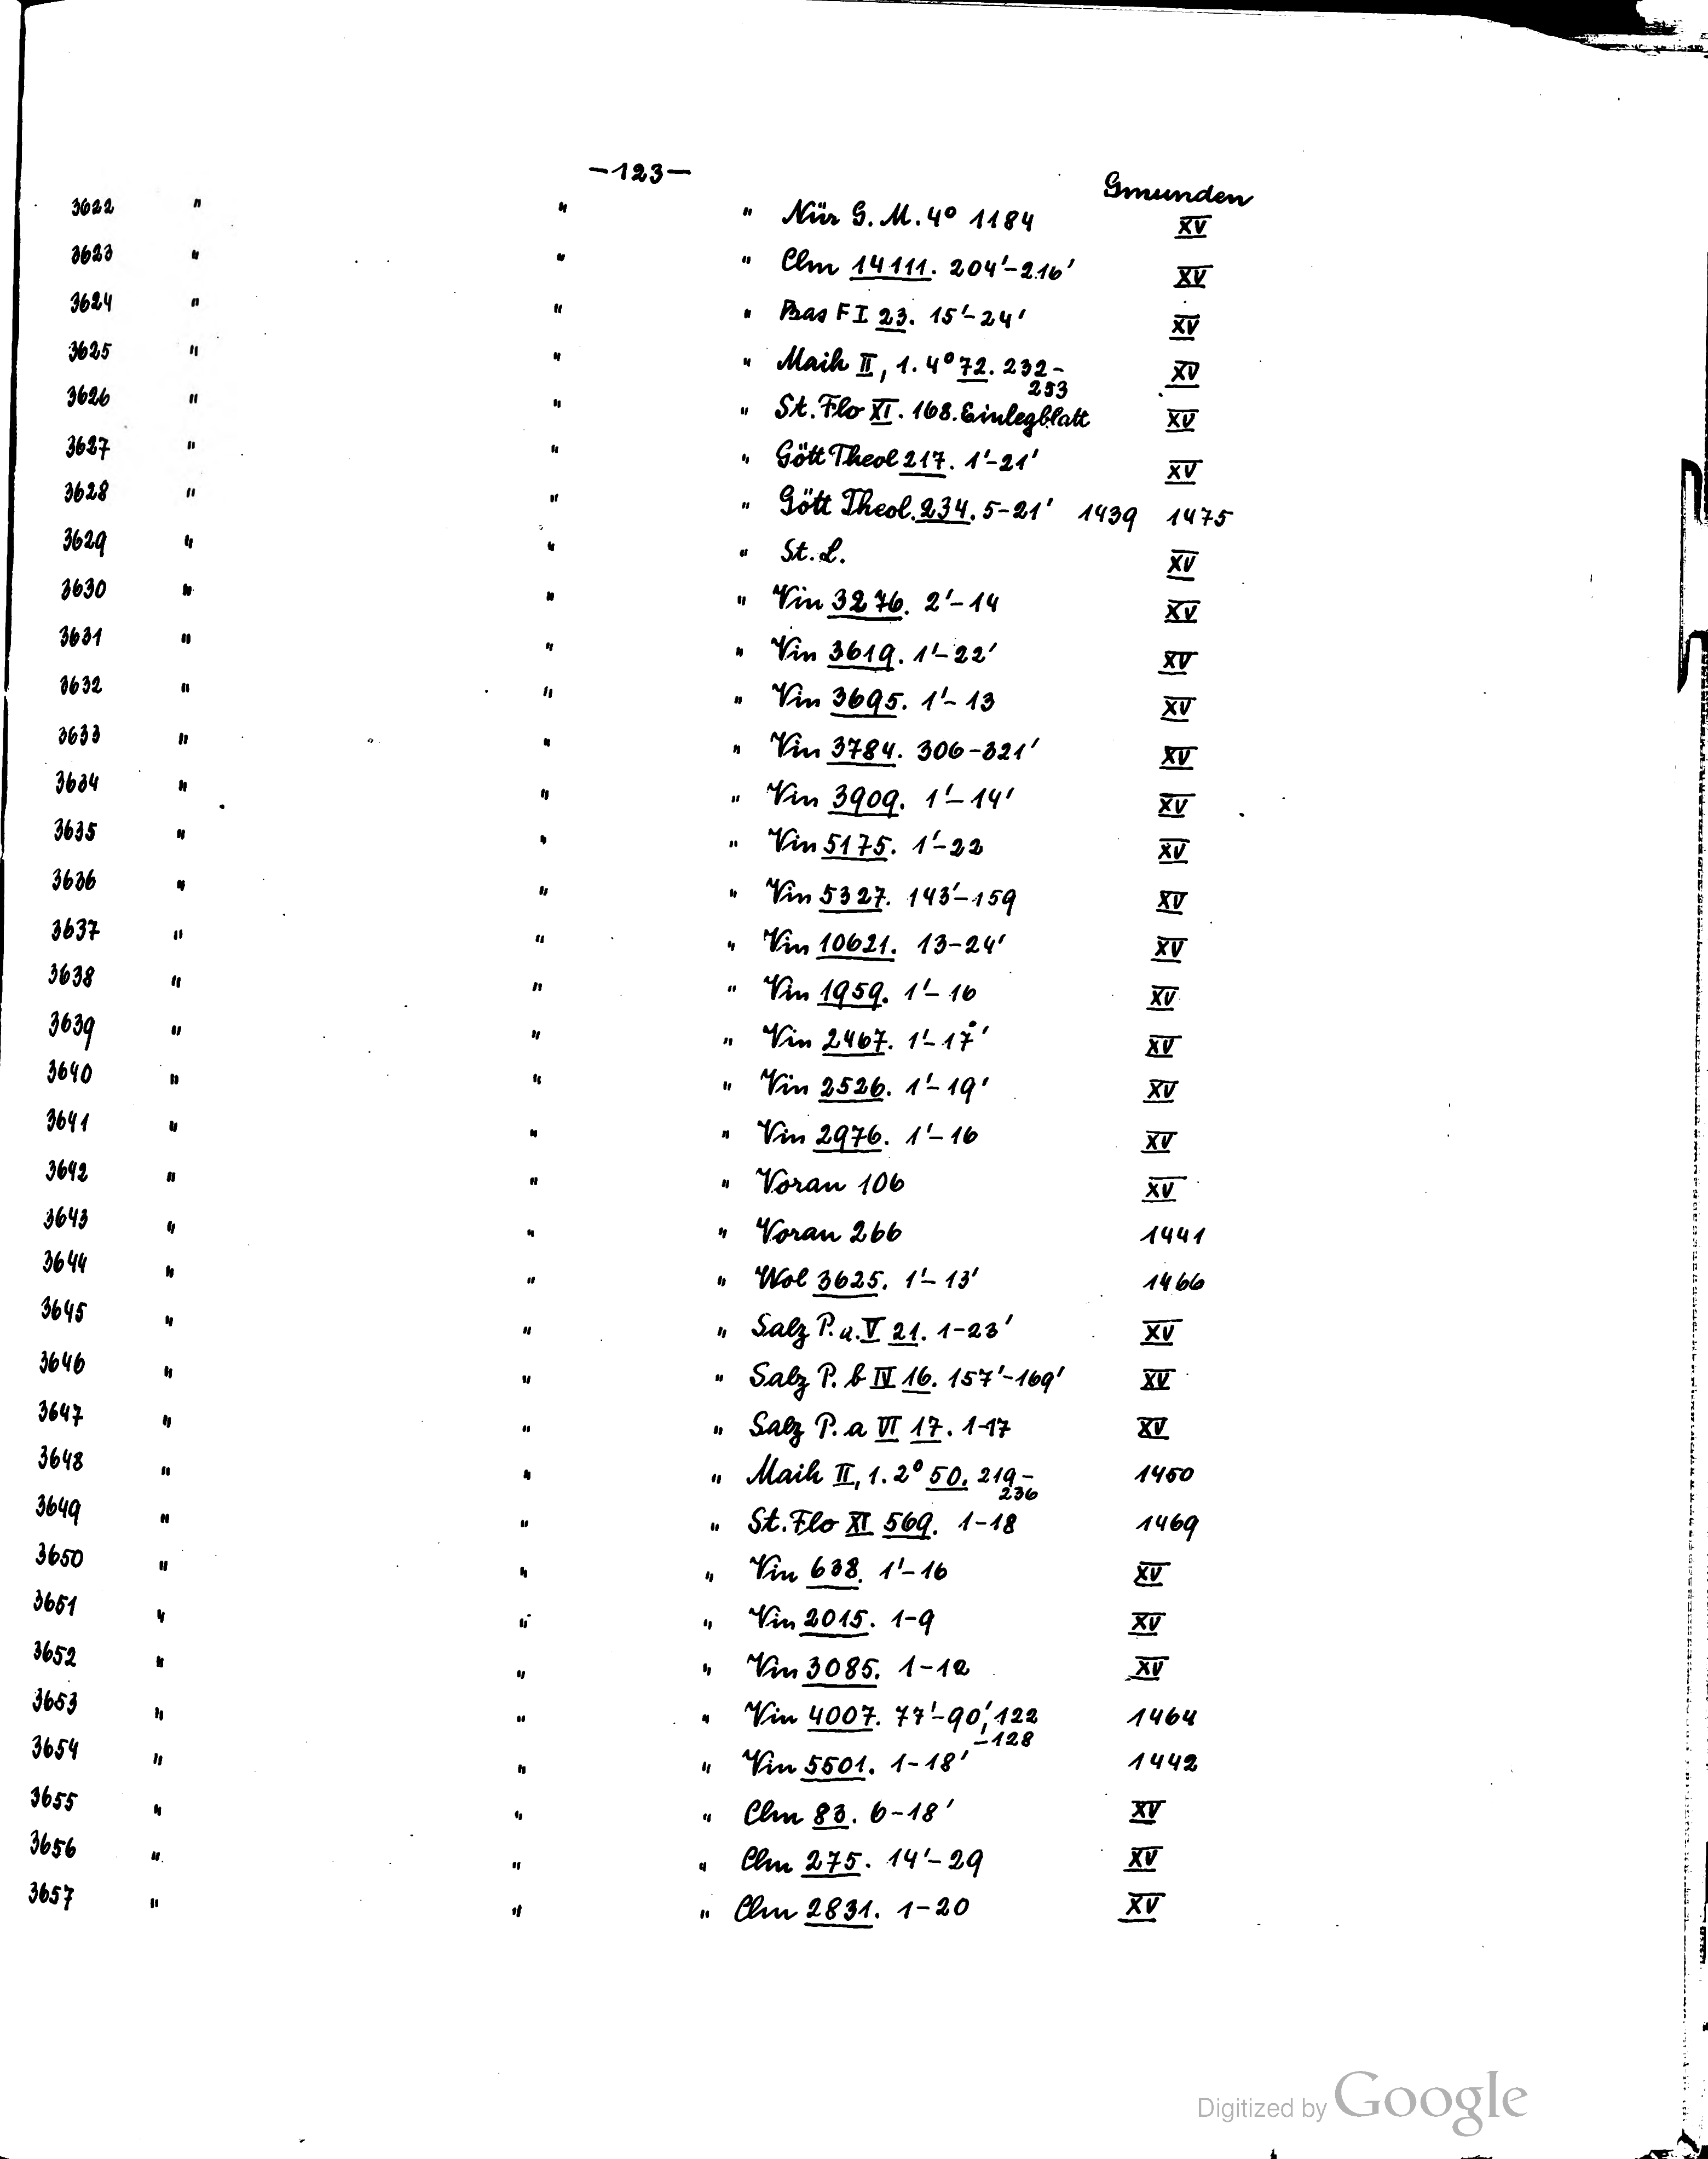 -123-
Gmunden
3622 " " " Nür G. M. 4° 1184 XV
3623 " " " Clm 14111. 204'-216' XV
3624 " " " Bas F I 23. 15'-24' XV
3625 " " " Maih II, 1. 4° 72. 232-
253 XV
3626 " " " St. Flo XI. 168. Einlegblatt XV
3627 " " " Gött Theol 217. 1'-21' XV
3628 " " " Gött Theol. 234. 5-21' 1439 1475
3629 " " " St. L. XV
3630 " " " Vin 3276. 2'-14 XV
3631 " " " Vin 3619. 1'-22' XV
3632 " " " Vin 3695. 1'-13 XV
3633 " " " Vin 3784. 306-321' XV
3634 " " " Vin 3909. 1'-14' XV
3635 " " " Vin 5175. 1'-22 XV
3636 " " " Vin 5327. 143'-159 XV
3637 " " " Vin 10621. 13-24' XV
3638 " " " Vin 1959. 1'-16 XV
3639 " " " Vin 2467. 1'-17' XV
3640 " " " Vin 2526. 1'-19' XV
3641 " " " Vin 2976. 1'-16 XV
3642 " " " Voran 106 XV
3643 " " " Voran 266 1441
3644 " " " Wol 3625. 1'-13' 1466
3645 " " " Salz P. a. V 21. 1-23' XV
3646 " " " Salz P. b IV 16. 157'-169' XV
3647 " " " Salz P. a VI 17. 1-17 XV
3648 " " " Maih II, 1. 2° 50. 219-
236 1450
3649 " " " St. Flo XI 569. 1-18 1469
3650 " " " Vin 638. 1'-16 XV
3651 " " " Vin 2015. 1-9 XV
3652 " " " Vin 3085. 1-12 XV
3653 " " " Vin 4007. 77'-90', 122
-128 1464
3654 " " " Vin 5501. 1-18' 1442
3655 " " " Clm 83. 6-18' XV
3656 " " " Clm 275. 14'-29 XV
3657 " " " Clm 2831. 1-20 XV
Digitized by Google